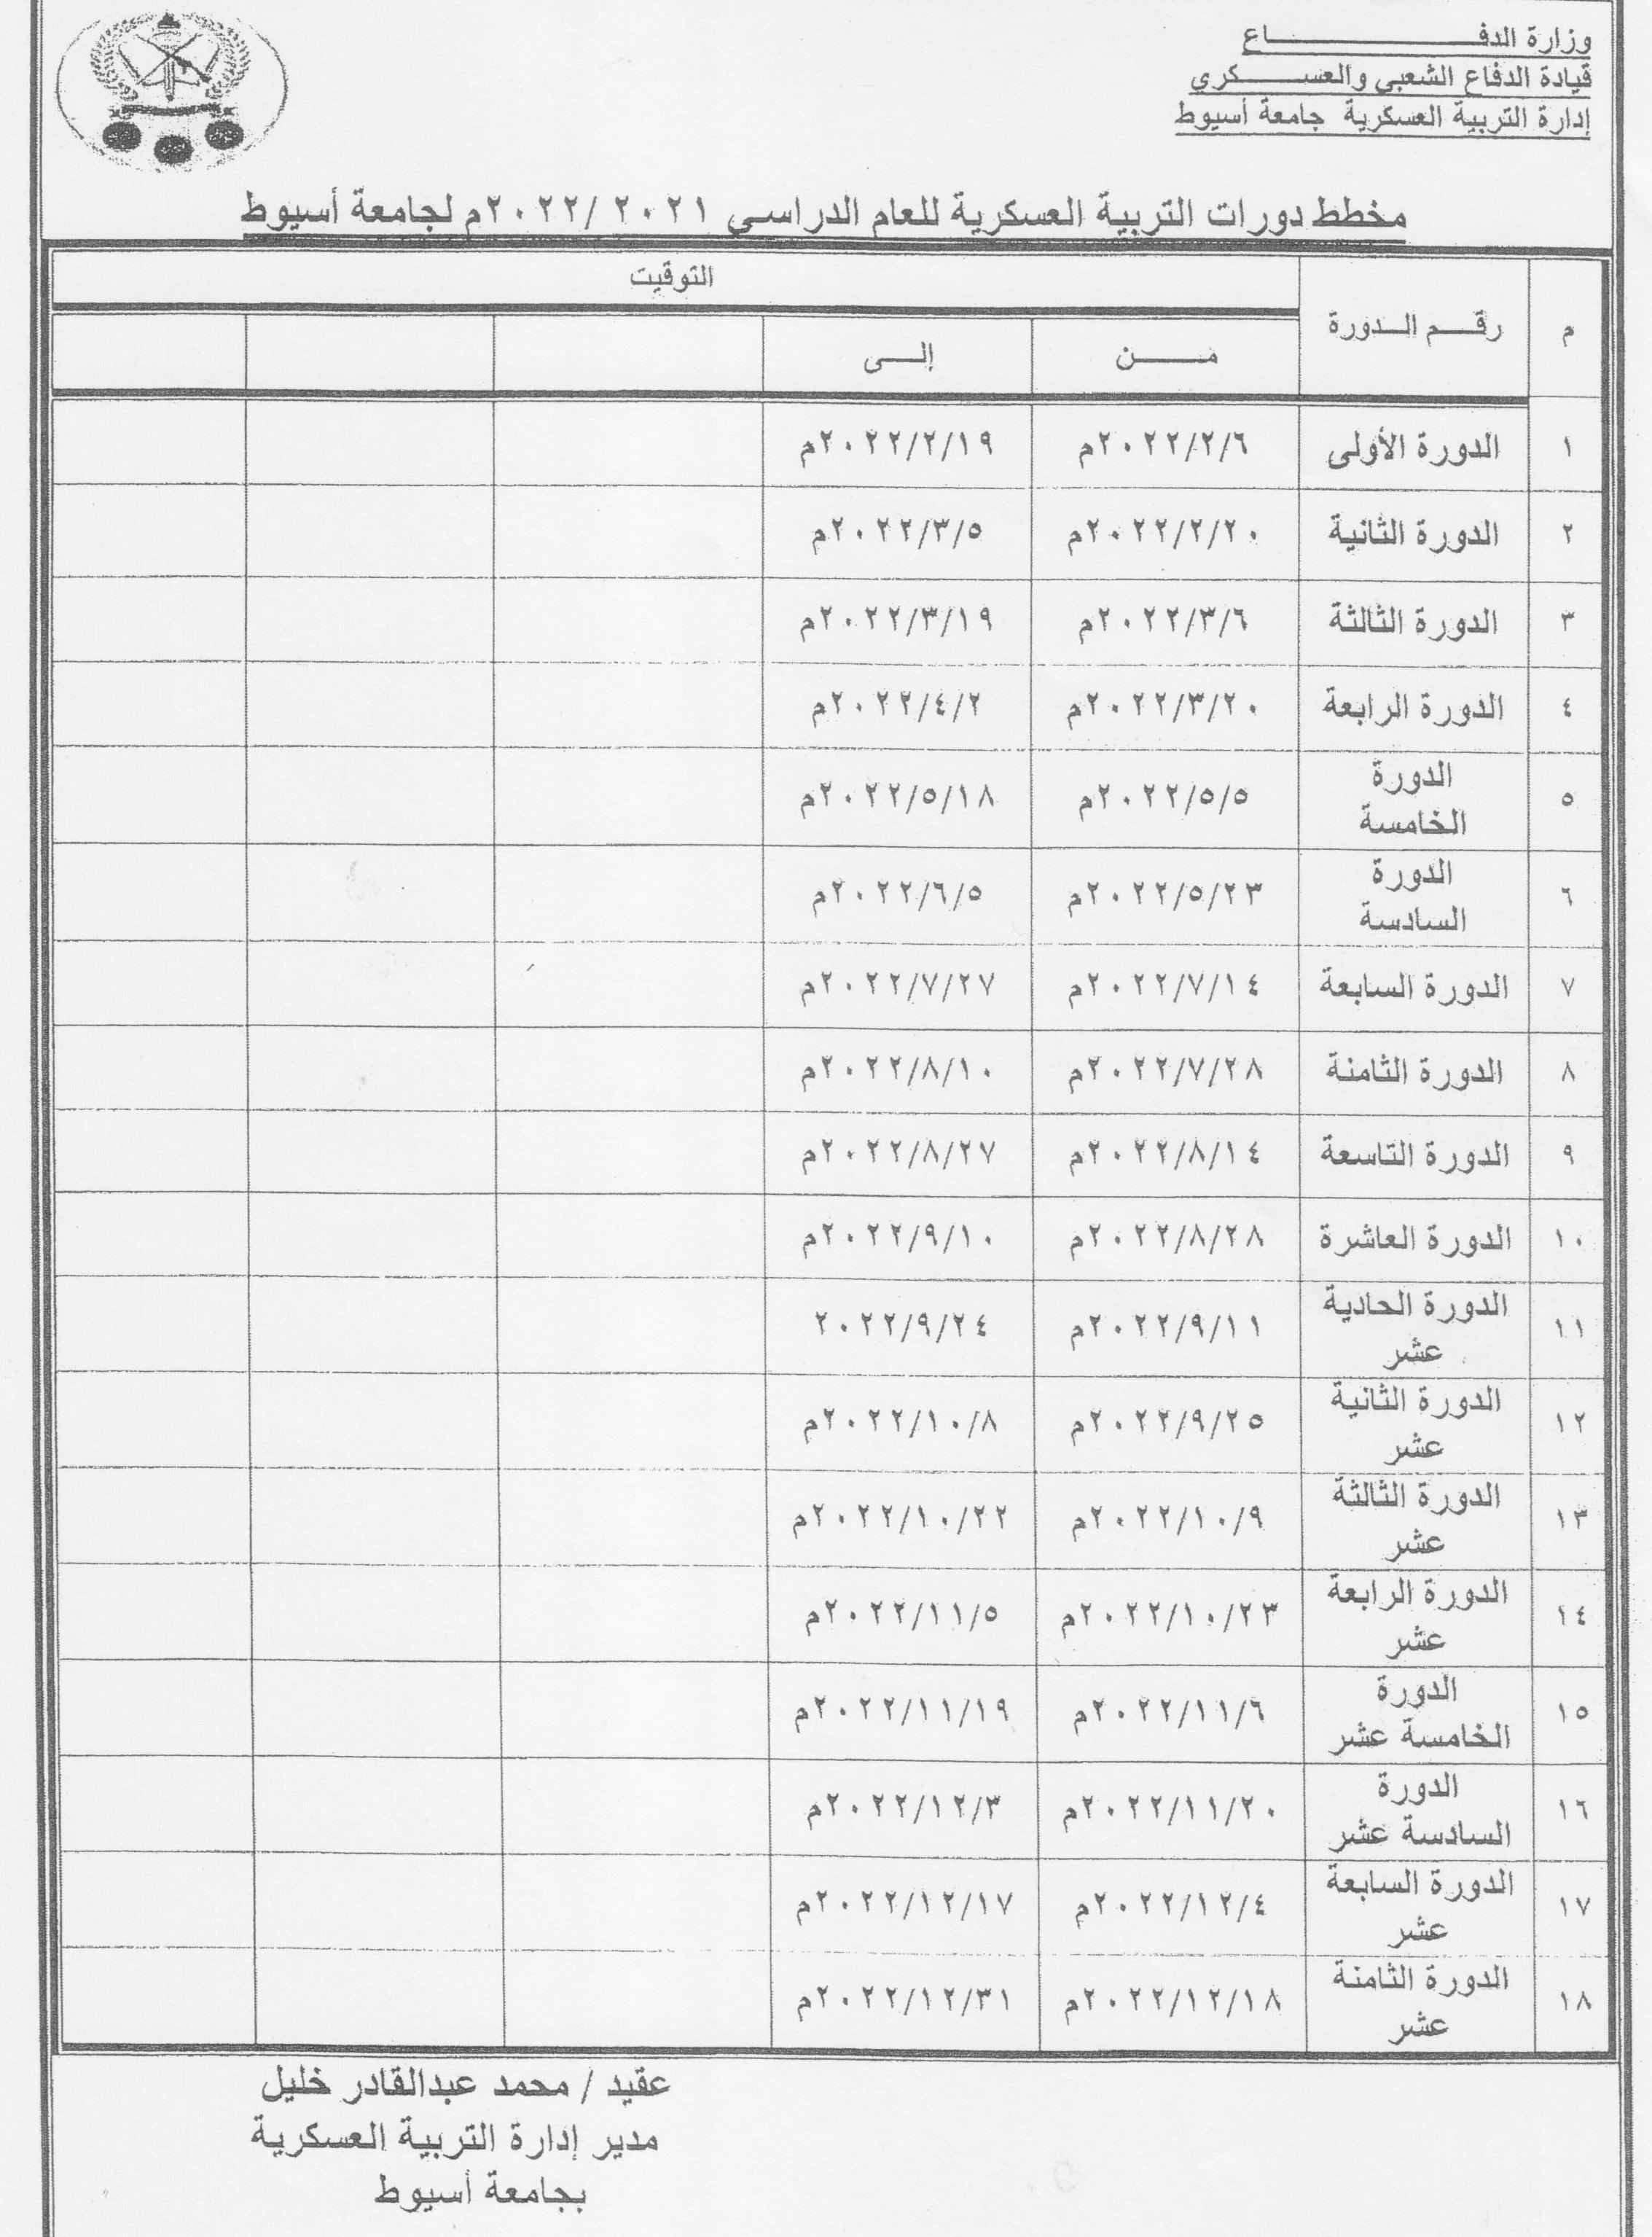 وزارة الدفـــــــــــاع
قيادة الدفاع الشعبي والعســــكري
إدارة التربية العسكرية جامعة أسيوط
مخطط دورات التربية العسكرية للعام الدراسي ٢٠٢١ /٢٠٢٢م لجامعة أسيوط
م رقـــم الــدورة التوقيت
مــــن إلــى
١ الدورة الأولى ٢٠٢٢/٢/٦م ٢٠٢٢/٢/١٩م
٢ الدورة الثانية ٢٠٢٢/٢/٢٠م ٢٠٢٢/٣/٥م
٣ الدورة الثالثة ٢٠٢٢/٣/٦م ٢٠٢٢/٣/١٩م
٤ الدورة الرابعة ٢٠٢٢/٣/٢٠م ٢٠٢٢/٤/٢م
٥ الدورة
الخامسة ٢٠٢٢/٥/٥م ٢٠٢٢/٥/١٨م
٦ الدورة
السادسة ٢٠٢٢/٥/٢٣م ٢٠٢٢/٦/٥م
٧ الدورة السابعة ٢٠٢٢/٧/١٤م ٢٠٢٢/٧/٢٧م
٨ الدورة الثامنة ٢٠٢٢/٧/٢٨م ٢٠٢٢/٨/١٠م
٩ الدورة التاسعة ٢٠٢٢/٨/١٤م ٢٠٢٢/٨/٢٧م
١٠ الدورة العاشرة ٢٠٢٢/٨/٢٨م ٢٠٢٢/٩/١٠م
١١ الدورة الحادية
عشر ٢٠٢٢/٩/١١م ٢٠٢٢/٩/٢٤
١٢ الدورة الثانية
عشر ٢٠٢٢/٩/٢٥م ٢٠٢٢/١٠/٨م
١٣ الدورة الثالثة
عشر ٢٠٢٢/١٠/٩م ٢٠٢٢/١٠/٢٢م
١٤ الدورة الرابعة
عشر ٢٠٢٢/١٠/٢٣م ٢٠٢٢/١١/٥م
١٥ الدورة
الخامسة عشر ٢٠٢٢/١١/٦م ٢٠٢٢/١١/١٩م
١٦ الدورة
السادسة عشر ٢٠٢٢/١١/٢٠م ٢٠٢٢/١٢/٣م
١٧ الدورة السابعة
عشر ٢٠٢٢/١٢/٤م ٢٠٢٢/١٢/١٧م
١٨ الدورة الثامنة
عشر ٢٠٢٢/١٢/١٨م ٢٠٢٢/١٢/٣١م
عقيد / محمد عبدالقادر خليل
مدير إدارة التربية العسكرية
بجامعة أسيوط